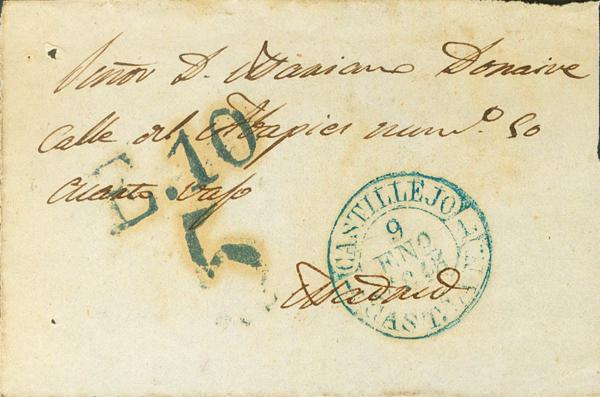 Señor D. Mariano Donaire
Calle del Abapies num.º 50
Cuarto bajo
E.10
CASTILLEJO
9
ENO
Madrid